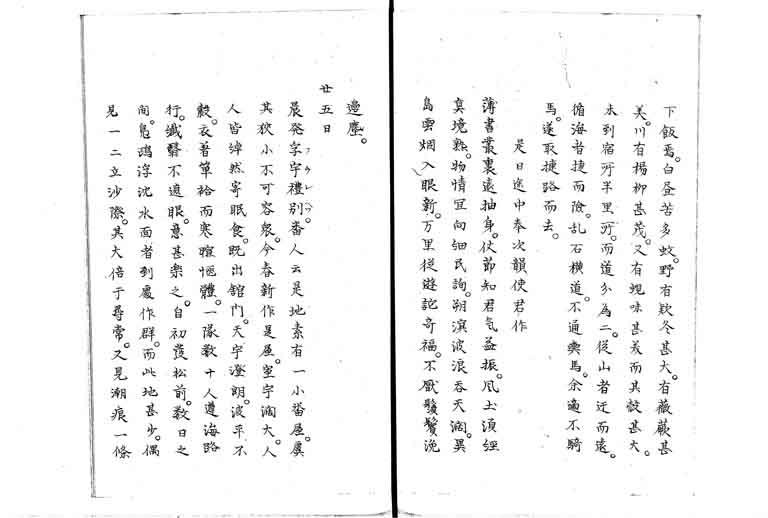 下飯焉。白昼苦多蚊。野有欵冬甚大。有薇蕨甚
美。川有楊柳甚茂。又有蜆味甚美而其殼甚大。
未到宿所半里所。而道分為二。従山者迂而遠。
循海者捷而險。乱石横道。不通輿馬。余適不騎
馬。遂取捷路而去。
是日途中奉次韻使君作
薄書叢裏遠抽身。仗節知君気益振。風土須経
真境熟。物情冝向細民詢。朔溟波浪吞天濶。異
島雲烟入眼新。万里従遊詑奇福。不厭鬚鬢浼
邊塵。
廿五日
晨発孛宇禮別。番人云是地素有一小番屋。廙
其狹小不可容衆。今春新作是屋。室宇濶大。人
人皆淖然寧眠食。既出舘門。天宇澄朗。波平不
皺。衣着單袷而寒暄愜體。一隊数十人遵海路
行。纖翳不遮眼。意甚楽之。自初發松前。数日之
間。鳧鴎浮沈水面者到處作群。而此地甚少。偶
見一二立沙際。其大倍于尋常。又見潮痕一條